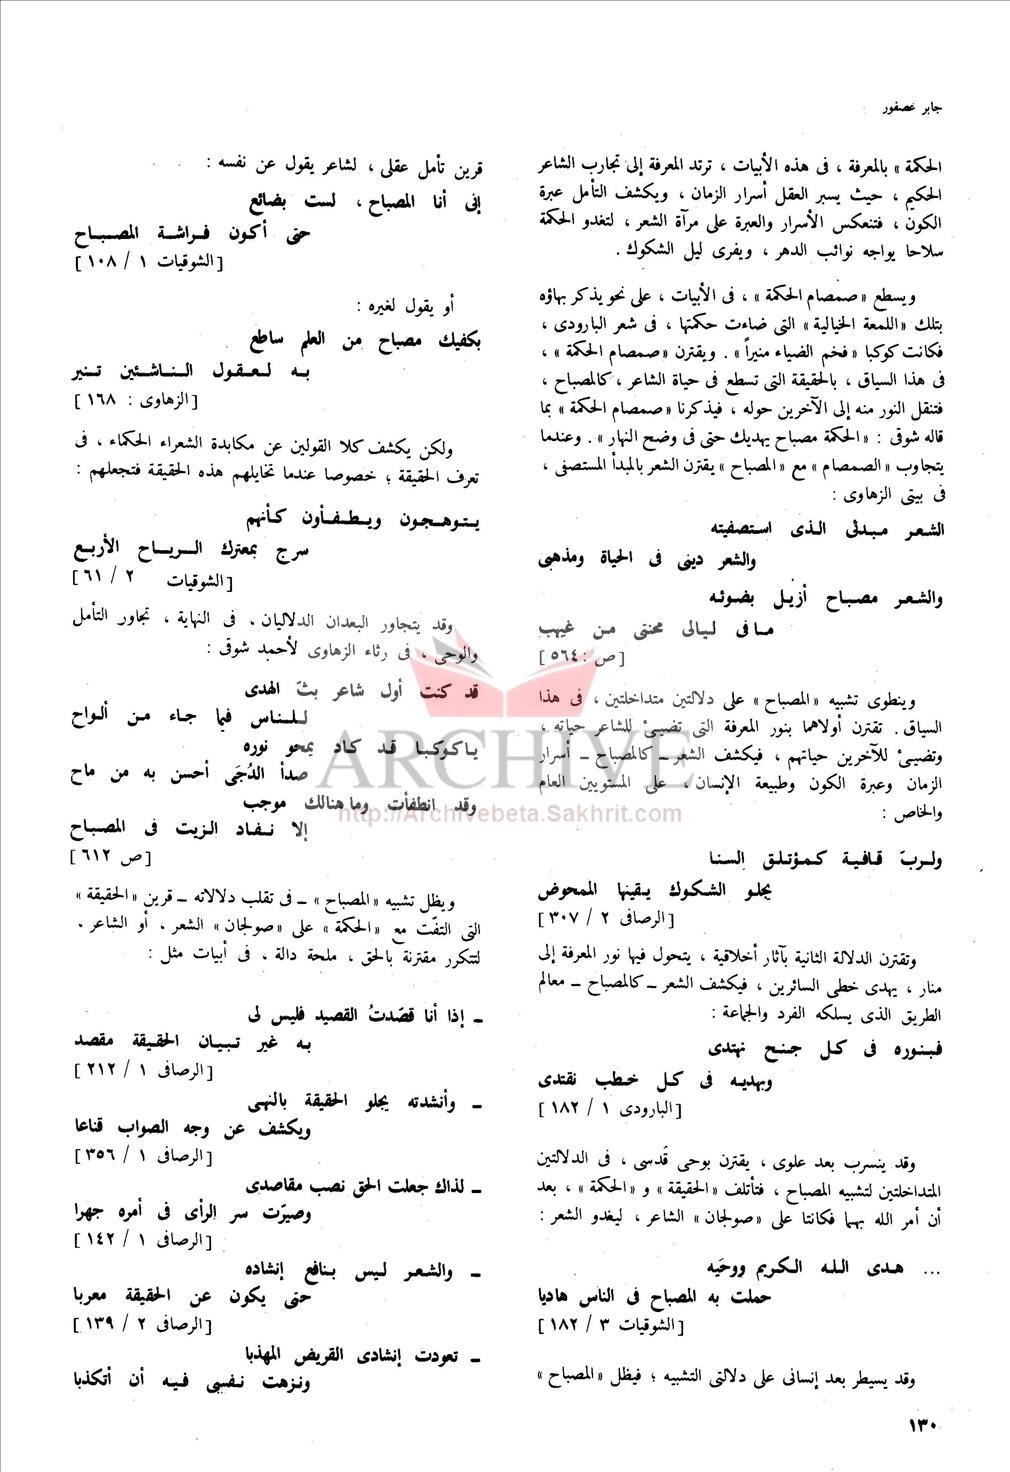 جابر عصفور
الحكمة » بالمعرفة ، فى هذه الأبيات ، ترتد المعرفة إلى تجارب الشاعر
الحكيم ، حيث يسبر العقل أسرار الزمان ، ويكشف التأمل عبرة
الكون ، فتنعكس الأسرار والعبرة على مرآة الشعر ، لتغدو الحكمة
سلاحا يواجه نوائب الدهر ، ويفرى ليل الشكوك .
ويسطع « صمصام الحكمة » ، فى الأبيات ، على نحو يذكر بهاؤه
بتلك «اللمعة الخيالية » التى ضاءت حكمتها ، فى شعر البارودى ،
فكانت كوكبا « فخم الضياء منيراً » . ويقترن «صمصام الحكمة » ،
فى هذا السياق ، بالحقيقة التى تسطع فى حياة الشاعر ، كالمصباح ،
فتنقل النور منه إلى الآخرين حوله ، فيذكرنا «صمصام الحكمة » بما
قاله شوقى : « الحكمة مصباح يهديك حتى فى وضح النهار » . وعندما
يتجاوب «الصمصام » مع « المصباح » يقترن الشعر بالمبدأ المستصفى ،
فى بيتى الزهاوى :
الشعر مبدئى الذى استصفيته
والشعر دينى فى الحياة ومذهبى
والشعر مصباح أزيل بضوئه
ما فى ليالى محنتى من غيهب
[ ص : ٥٦٤ ]
وينطوى تشبيه «المصباح» على دلالتين متداخلتين ، فى هذا
السياق . تقترن أولاهما بنور المعرفة التى تضيئ للشاعر حياته ،
وتضيئ للآخرين حياتهم ، فيكشف الشعر ـ كالمصباح ـ أسرار
الزمان وعبرة الكون وطبيعة الإنسان ، على المستويين العام
والخاص :
ولربّ قافية كمؤتلق السنا
يجلو الشكوك يقينها الممحوض
[ الرصافى ٢ / ٣٠٧ ]
وتقترن الدلالة الثانية بآثار أخلاقية ، يتحول فيها نور المعرفة إلى
منار ، يهدى خطى السائرين ، فيكشف الشعر ـ كالمصباح ـ معالم
الطريق الذى يسلكه الفرد والجماعة :
فبنوره فى كل جنح نهتدى
وبهديه فى كل خطب نقتدى
[ البارودى ١ / ١٨٢ ]
وقد ينسرب بعد علوى ، يقترن بوحى قدسى ، فى الدلالتين
المتداخلتين لتشبيه المصباح ، فتأتلف «الحقيقة » و « الحكمة » ، بعد
أن أمر الله بهما فكانتا على «صولجان» الشاعر ، ليغدو الشعر :
... هدى الله الكريم ووحيه
حملت به المصباح فى الناس هاديا
[ الشوقيات ٣ / ١٨٢ ]
وقد يسيطر بعد إنسانى على دلالتى التشبيه ؛ فيظل «المصباح »
قرين تأمل عقلى ، لشاعر يقول عن نفسه :
إنى أنا المصباح ، لست بضائع
حتى أكون فراشة المصباح
[ الشوقيات ١ / ١٠٨ ]
أو يقول لغيره :
بكفيك مصباح من العلم ساطع
به لعقول الناشئين تنير
[ الزهاوى : ١٦٨ ]
ولكن يكشف كلا القولين عن مكابدة الشعراء الحكماء ، فى
تعرف الحقيقة ؛ خصوصا عندما تخايلهم هذه الحقيقة فتجعلهم :
يتوهجون ويطفأون كأنهم
سرج بمعترك الرياح الأربع
[ الشوقيات ٢ / ٦١ ]
وقد يتجاور البعدان الدلاليان ، فى النهاية ، تجاور التأمل
والوحى ، فى رثاء الزهاوى لأحمد شوقى :
قد كنت أول شاعر بثّ الهدى
للناس فيما جاء من ألواح
ياكوكبا قد كاد يمحو نوره
صدأ الدُجَى أحسن به من ماح
وقد انطفأت وما هنالك موجب
إلا نفاد الزيت فى المصباح
[ ص ٦١٢ ]
ويظل تشبيه «المصباح » ـ فى تقلب دلالاته ـ قرين «الحقيقة »
التى التفّت مع «الحكمة » على «صولجان» الشعر ، أو الشاعر ،
لتتكرر مقترنة بالحق ، ملحة دالة ، فى أبيات مثل :
ـ إذا أنا قصّدتُ القصيد فليس لى
به غير تبيان الحقيقة مقصد
[ الرصافى ١ / ٢١٢ ]
ـ وأنشدته يجلو الحقيقة بالنهى
ويكشف عن وجه الصواب قناعا
[ الرصافى ١ / ٣٥٦ ]
ـ لذاك جعلت الحق نصب مقاصدى
وصيرّت سر الرأى فى أمره جهرا
[ الرصافى ١ / ١٤٢ ]
ـ والشعر ليس بنافع إنشاده
حتى يكون عن الحقيقة معربا
[ الرصافى ٢ / ١٣٩ ]
ـ تعودت إنشادى القريض المهذبا
ونزهت نفسى فيه أن أتكذبا
١٣٠
ARCHIVE
http://Archivebeta.Sakhrit.com